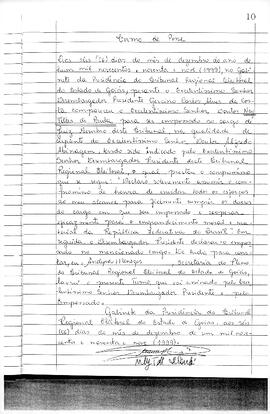 10
Termo de Posse
Aos seis (06) dias do mês de dezembro do ano de
hum mil novecentos e noventa e nove (1999), no Gabi-
nete da Presidência do Tribunal Regional Eleitoral
do Estado de Goiás, perante o Excelentíssimo Senhor
Desembargador Presidente Geraldo
compareceu o Excelentíssimo Senhor Doutor Ney
Teles de Paula para ser empossado no cargo de
Juiz Membro deste Tribunal, na qualidade de
suplente do Excelentíssimo Senhor Doutor
tendo sido indicado pelo Excelentíssimo
Senhor Desembargador Presidente deste Tribunal
Regional Eleitoral, o qual prestou o compromisso
que se segue:
promisso de honra de
ao meu alcance para fielmente cumprir os deveres
do cargo em que sou empossado e cooperar,
para o engrandecimento moral e ma-
terial da República Federativa do Brasil". Em
seguida o Desembargador Presidente declarou-o empos-
sado no mencionado cargo. E, de tudo para cons-
tar, eu, Secretária do Pleno
do Tribunal Regional Eleitoral do Estado de Goiás,
lavrei o presente Termo que vai assinado pelo Exce-
lentíssimo Senhor Desembargador Presidente e pelo
empossado.
Gabinete da Presidência do Tribunal
Regional Eleitoral do Estado de Goiás, aos seis
(06) dias do mês de dezembro de um mil nove-
centos e noventa e nove (1999).